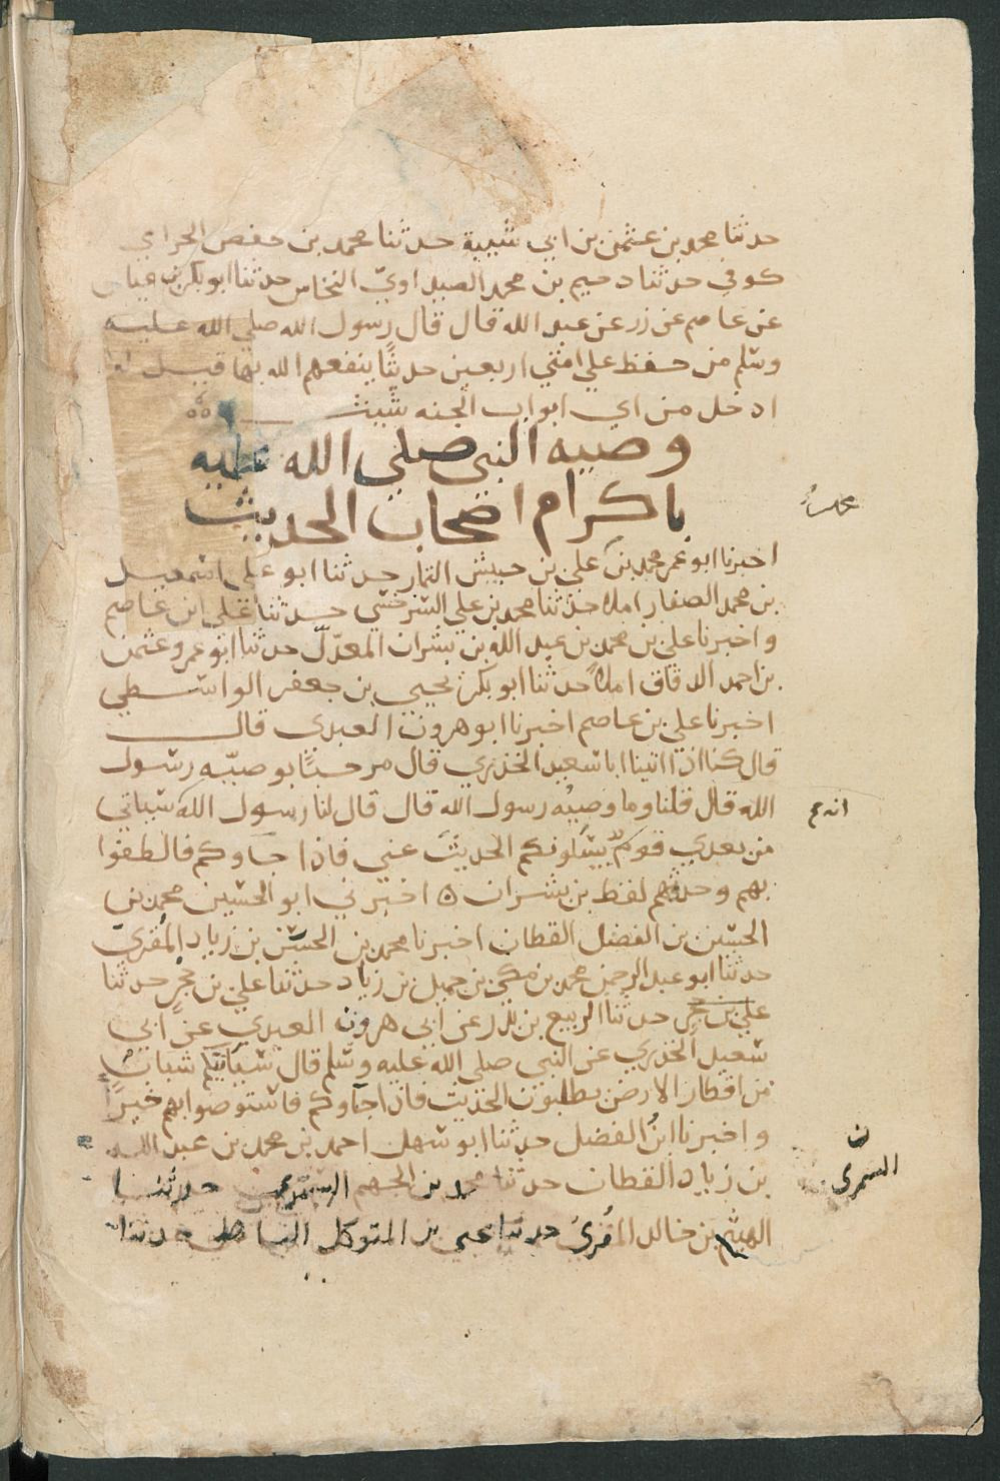 حدثنا محمد بن عثمن بن ابي شيبة حدثنا محمد بن حفص الحراي
كوفي حدثنا دحيم بن محمد الصيداوي النخاس حدثنا ابو بكر بن عياش
عن عاصم عن زر عن عبد الله قال قال رسول الله صلى الله عليه
وسلم من حفظ على امتي اربعين حديثا ينفعهم الله بها قيل له
ادخل من اي ابواب الجنه شيت
وصيه النبى صلى الله عليه
باكرام اصحاب الحديث
اخبرنا ابو عمر محمد بن علي بن حبيش التمار حدثنا ابو علي اسمعيل
بن محمد الصفار املاء حدثنا محمد بن علي السرخسي حدثنا علي ابن عاصم
واخبرنا علي بن محمد بن عبد الله بن بشران المعدل حدثنا ابو عمرو عثمن
بن احمد الدقاق املاء حدثنا ابو بكر يحيى بن جعفر الواسطي
اخبرنا علي بن عاصم اخبرنا ابو هرون العبدي قال
قال كنا اذا اتينا ابا سعيد الخدري قال مرحبا بوصيه رسول
الله قال قلنا وما وصيه رسول الله قال قال لنا رسول الله سياتي
انه م
من بعدي قوم يسئلونكم الحديث عني فاذا جاوكم فالطفوا
بهم وحدثهم لفظ بن بشران ه اخبرني ابو الحسين محمد بن
الحسين بن الفضل القطان اخبرنا محمد بن الحسن بن زياد المقري
حدثنا ابو عبد الرحمن محمد بن مكي بن جميل بن زياد حدثنا علي بن حجر حدثنا
علي بن حجر حدثنا الربيع بن بدر عن ابي هرون العبدي عن ابي
سعيد الخدري عن النبي صلى الله عليه وسلم قال سياتيكم شباب
من اقطار الارض يطلبون الحديث فاذا جاوكم فاستوصوا بهم خيرا
واخبرنا ابن الفضل حدثنا ابو سهل احمد بن محمد بن عبد الله
بن زياد القطان حدثنا محمد بن الجهم السمري حدثنا
ن
السمرى
الهيثم بن خالد المقري حدثنا يحيى بن المتوكل الباهلي حدثنا